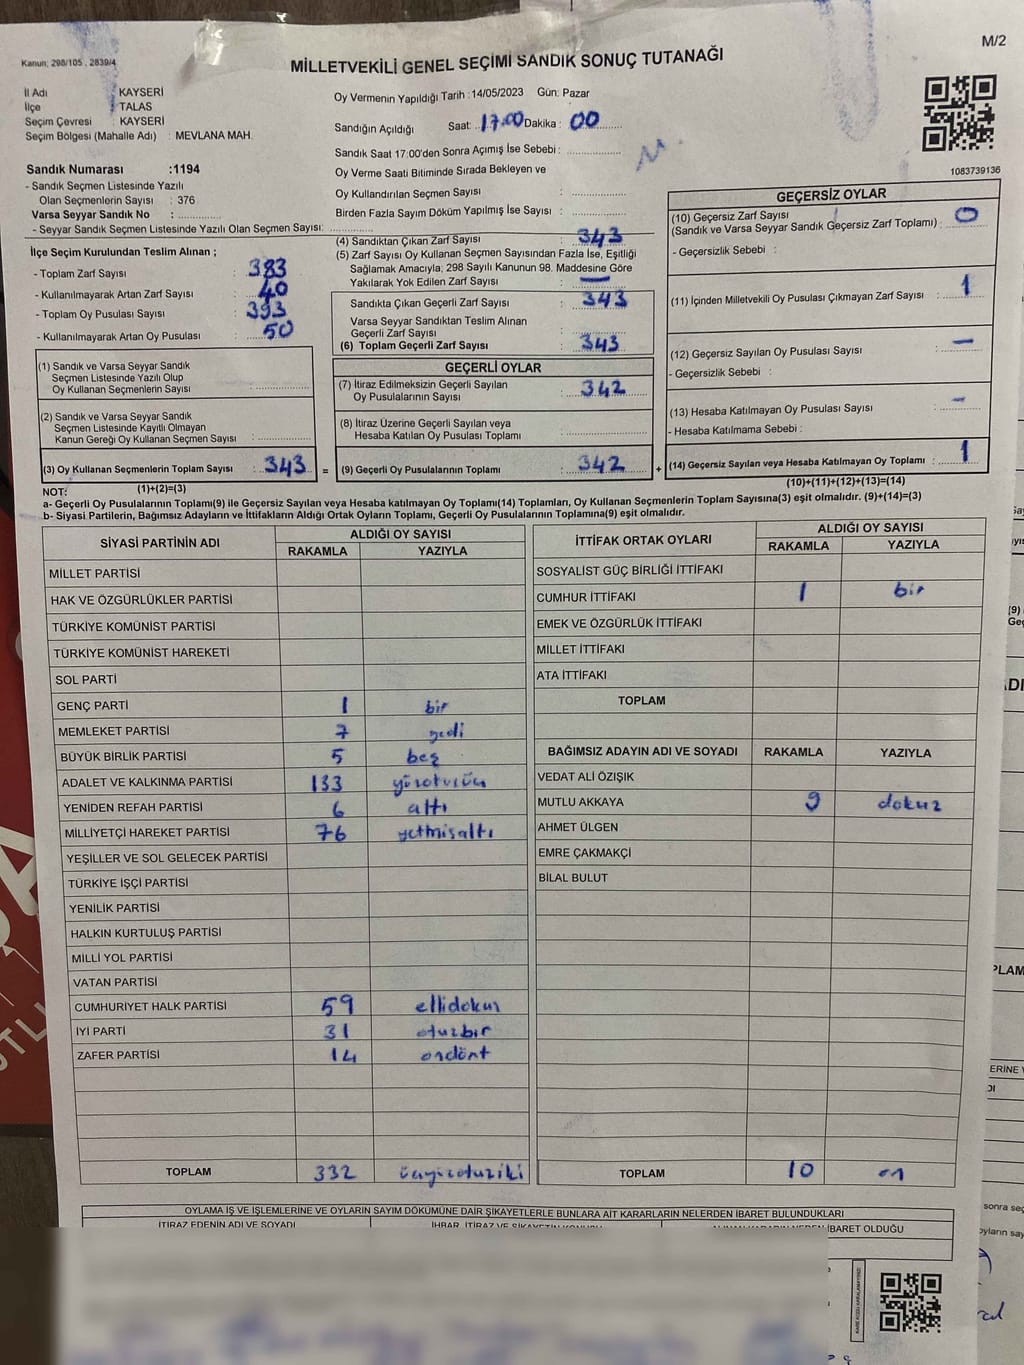 M/2
Kanun: 298/105 , 2839/4
MİLLETVEKİLİ GENEL SEÇİMİ SANDIK SONUÇ TUTANAĞI
İl Adı : KAYSERİ
İlçe : TALAS
Seçim Çevresi : KAYSERİ
Seçim Bölgesi (Mahalle Adı) : MEVLANA MAH.
Sandık Numarası :1194
- Sandık Seçmen Listesinde Yazılı
Olan Seçmenlerin Sayısı : 376
Varsa Seyyar Sandık No :
- Seyyar Sandık Seçmen Listesinde Yazılı Olan Seçmen Sayısı:
Oy Vermenin Yapıldığı Tarih :14/05/2023 Gün: Pazar
Sandığın Açıldığı Saat: 17.00 Dakika : 00
Sandık Saat 17:00'den Sonra Açımış İse Sebebi :
Oy Verme Saati Bitiminde Sırada Bekleyen ve
Oy Kullandırılan Seçmen Sayısı :
Birden Fazla Sayım Döküm Yapılmış İse Sayısı :
1083739136
İlçe Seçim Kurulundan Teslim Alınan ;
- Toplam Zarf Sayısı : 383
- Kullanılmayarak Artan Zarf Sayısı : 40
- Toplam Oy Pusulası Sayısı : 393
- Kullanılmayarak Artan Oy Pusulası : 50
(1) Sandık ve Varsa Seyyar Sandık
Seçmen Listesinde Yazılı Olup
Oy Kullanan Seçmenlerin Sayısı :
(2) Sandık ve Varsa Seyyar Sandık
Seçmen Listesinde Kayitli Olmayan
Kanun Gereği Oy Kullanan Seçmen Sayısı :
(3) Oy Kullanan Seçmenlerin Toplam Sayısı : 343 =
(1)+(2)=(3)
(4) Sandıktan Çıkan Zarf Sayısı : 343
(5) Zarf Sayısı Oy Kullanan Seçmen Sayısından Fazla İse, Eşitliği
Sağlamak Amacıyla; 298 Sayılı Kanunun 98. Maddesine Göre
Yakılarak Yok Edilen Zarf Sayısı : —
Sandıkta Çıkan Geçerli Zarf Sayısı : 343
Varsa Seyyar Sandıktan Teslim Alınan
Geçerli Zarf Sayısı :
(6) Toplam Geçerli Zarf Sayısı : 343
GEÇERLİ OYLAR
(7) İtiraz Edilmeksizin Geçerli Sayılan
Oy Pusulalarının Sayısı : 342
(8) İtiraz Üzerine Geçerli Sayılan veya
Hesaba Katılan Oy Pusulası Toplamı :
(9) Geçerli Oy Pusulalarının Toplamı : 342 +
GEÇERSİZ OYLAR
(10) Geçersiz Zarf Sayısı
(Sandık ve Varsa Seyyar Sandık Geçersiz Zarf Toplamı) : 0
- Geçersizlik Sebebi :
(11) İçinden Milletvekili Oy Pusulası Çıkmayan Zarf Sayısı : 1
(12) Geçersiz Sayılan Oy Pusulası Sayısı : —
- Geçersizlik Sebebi :
(13) Hesaba Katılmayan Oy Pusulası Sayısı : —
- Hesaba Katılmama Sebebi :
(14) Geçersiz Sayılan veya Hesaba Katılmayan Oy Toplamı : 1
(10)+(11)+(12)+(13)=(14)
NOT:
a- Geçerli Oy Pusulalarının Toplamı(9) ile Geçersiz Sayılan veya Hesaba katılmayan Oy Toplamı(14) Toplamları, Oy Kullanan Seçmenlerin Toplam Sayısına(3) eşit olmalıdır. (9)+(14)=(3)
b- Siyasi Partilerin, Bağımsız Adayların ve İttifakların Aldığı Ortak Oyların Toplamı, Geçerli Oy Pusulalarının Toplamına(9) eşit olmalıdır.
SİYASİ PARTİNİN ADI ALDIĞI OY SAYISI
RAKAMLA YAZIYLA
MİLLET PARTİSİ
HAK VE ÖZGÜRLÜKLER PARTİSİ
TÜRKİYE KOMÜNİST PARTİSİ
TÜRKİYE KOMÜNİST HAREKETİ
SOL PARTİ
GENÇ PARTİ 1 bir
MEMLEKET PARTİSİ 7 yedi
BÜYÜK BİRLİK PARTİSİ 5 beş
ADALET VE KALKINMA PARTİSİ 133 yüzotuzüç
YENİDEN REFAH PARTİSİ 6 altı
MİLLİYETÇİ HAREKET PARTİSİ 76 yetmişaltı
YEŞİLLER VE SOL GELECEK PARTİSİ
TÜRKİYE İŞÇİ PARTİSİ
YENİLİK PARTİSİ
HALKIN KURTULUŞ PARTİSİ
MİLLİ YOL PARTİSİ
VATAN PARTİSİ
CUMHURİYET HALK PARTİSİ 59 ellidokuz
İYİ PARTİ 31 otuzbir
ZAFER PARTİSİ 14 ondört
TOPLAM 332 üçyüzotuziki
İTTİFAK ORTAK OYLARI ALDIĞI OY SAYISI
RAKAMLA YAZIYLA
SOSYALİST GÜÇ BİRLİĞİ İTTİFAKI
CUMHUR İTTİFAKI 1 bir
EMEK VE ÖZGÜRLÜK İTTİFAKI
MİLLET İTTİFAKI
ATA İTTİFAKI
TOPLAM
BAĞIMSIZ ADAYIN ADI VE SOYADI RAKAMLA YAZIYLA
VEDAT ALİ ÖZIŞIK
MUTLU AKKAYA 9 dokuz
AHMET ÜLGEN
EMRE ÇAKMAKÇİ
BİLAL BULUT
TOPLAM 10 on
OYLAMA İŞ VE İŞLEMLERİNE VE OYLARIN SAYIM DÖKÜMÜNE DAİR ŞİKAYETLERLE BUNLARA AİT KARARLARIN NELERDEN İBARET BULUNDUKLARI
İTİRAZ EDENİN ADI VE SOYADI
İBARET OLDUĞU